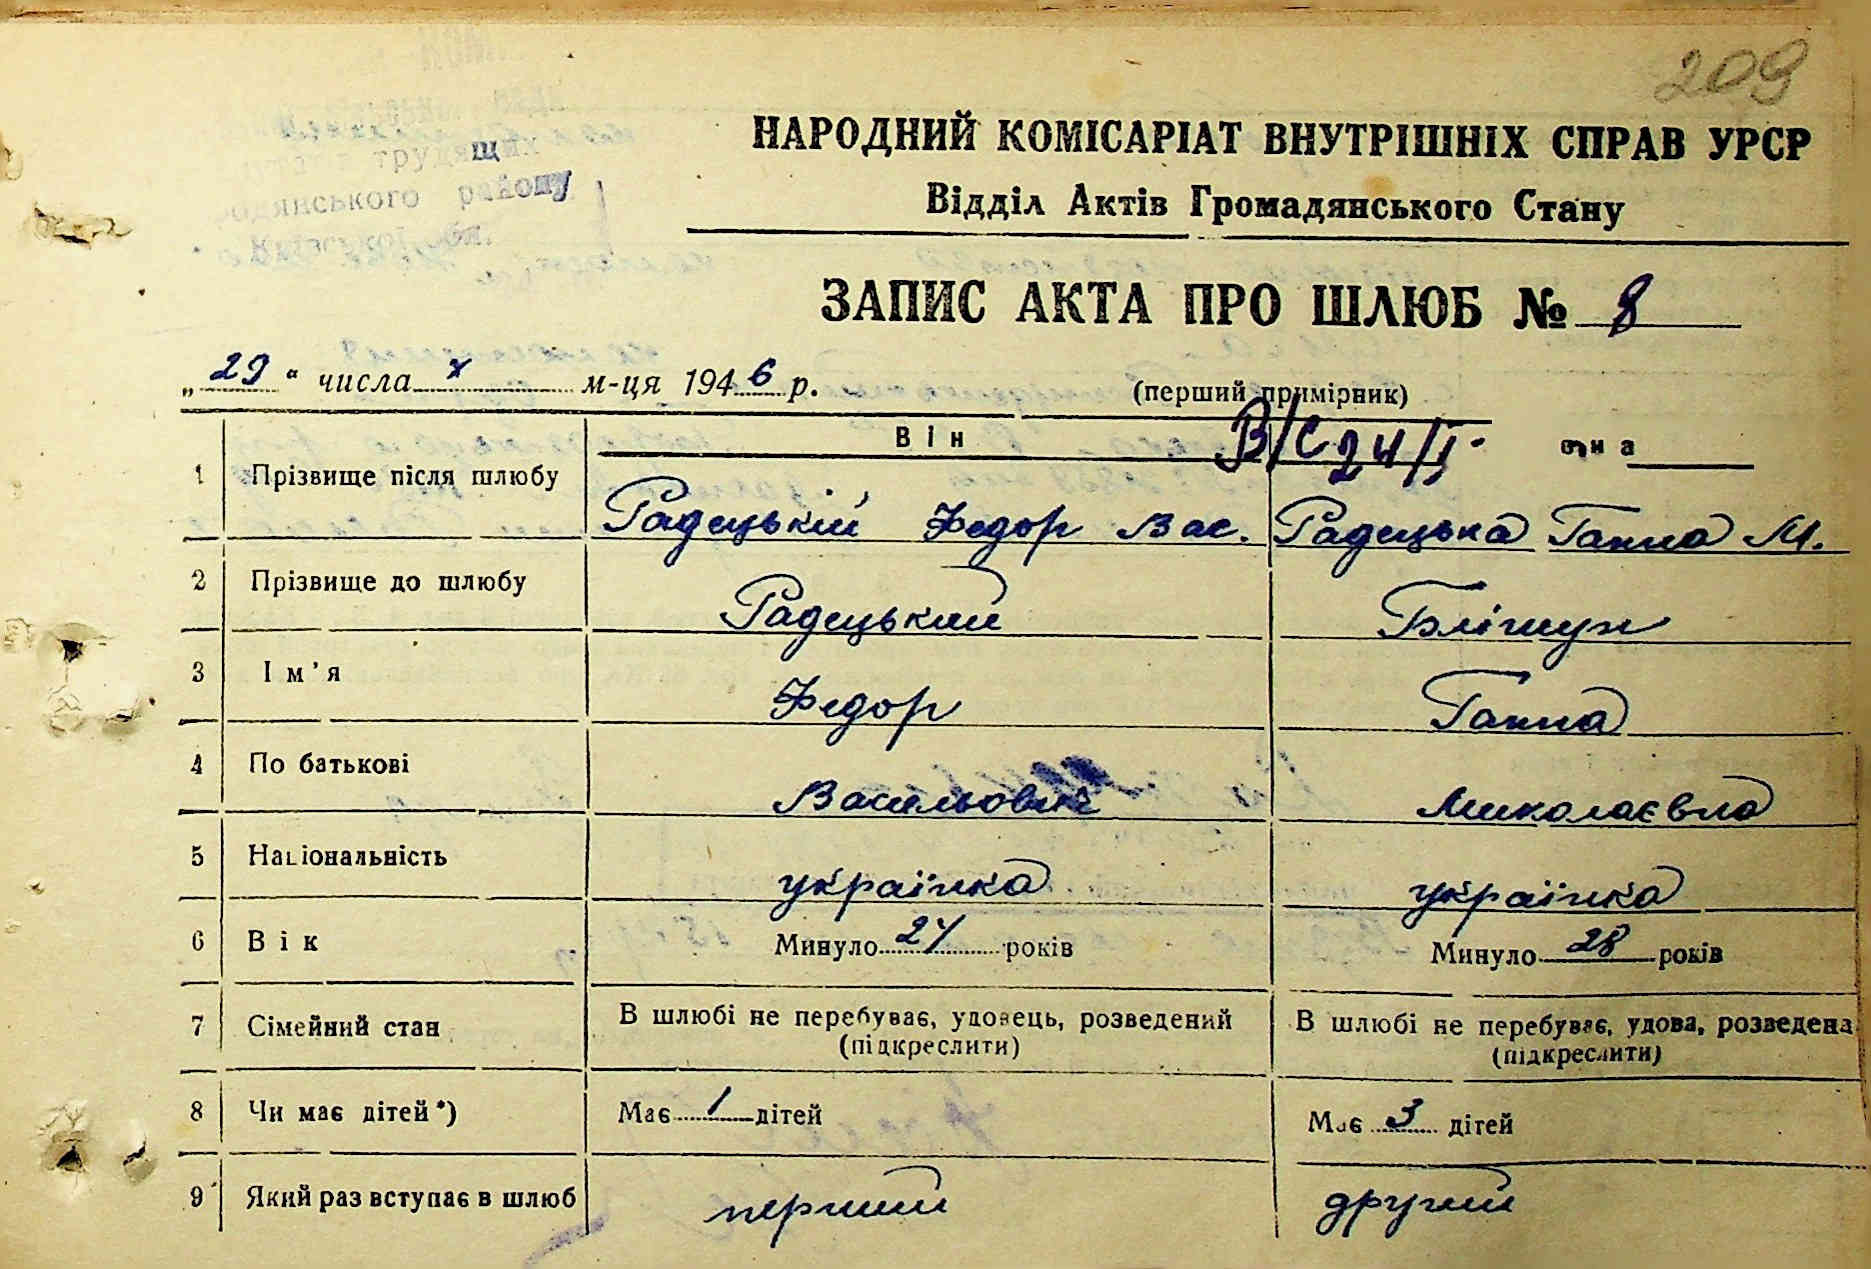 209
трудящих
району
Київської обл.
НАРОДНИЙ КОМІСАРІАТ ВНУТРІШНІХ СПРАВ УРСР
Відділ Актів Громадянського Стану
ЗАПИС АКТА ПРО ШЛЮБ № 8
„29“ числа X м-ця 1946 р.
(перший примірник)
Він В/С 24/I она
1 Прізвище після шлюбу Радецький Федор Вас. Радецька Ганна М.
2 Прізвище до шлюбу Радецький
3 Ім’я Федор Ганна
4 По батькові Васильович Миколаєвна
5 Національність українка українка
6 Вік Минуло 24 років Минуло 28 років
7 Сімейний стан В шлюбі не перебуває, удовець, розведений (підкреслити) В шлюбі не перебуває, удова, розведена (підкреслити)
8 Чи має дітей*) Має 1 дітей Має 3 дітей
9 Який раз вступає в шлюб перший другий